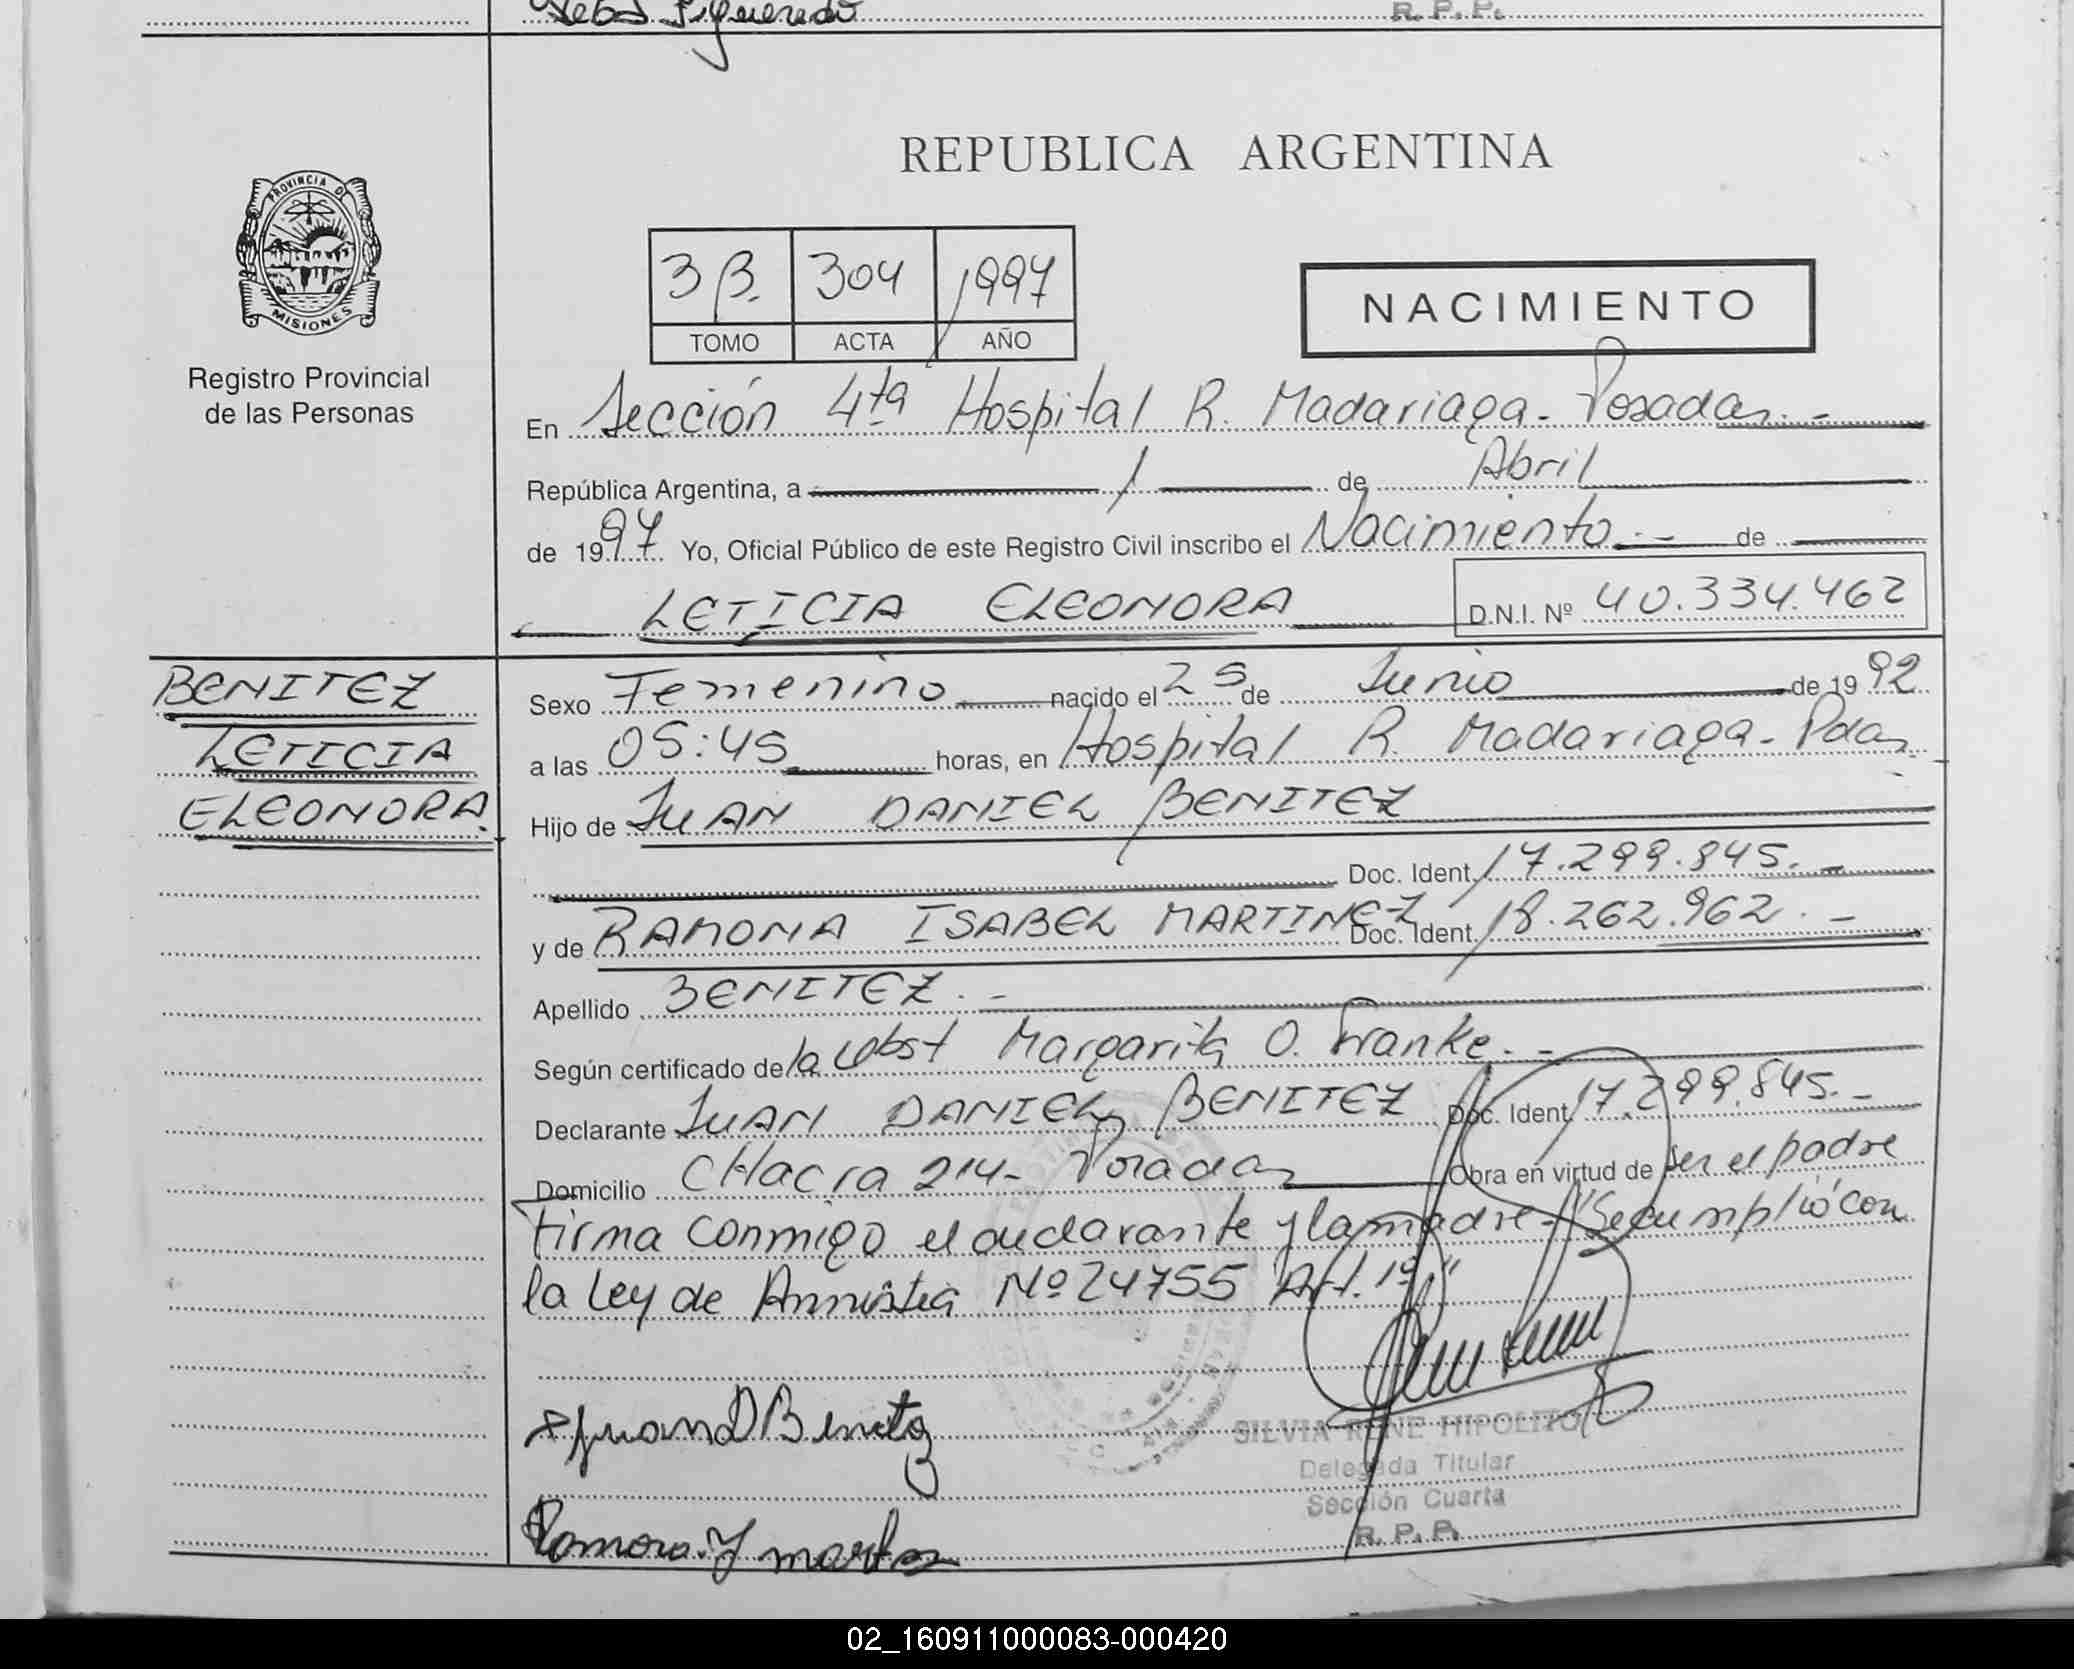 Figueredo
R. P. P.
REPUBLICA ARGENTINA
PROVINCIA DE
MISIONES
Registro Provincial
de las Personas
3 B. 304 1997
TOMO ACTA AÑO
NACIMIENTO
En Sección 4ta Hospital R. Madariaga - Posadas. -
República Argentina, a 1 de Abril
de 1997. Yo, Oficial Público de este Registro Civil inscribo el Nacimiento. - de
LETICIA ELEONORA D.N.I. Nº 40.334.462
BENITEZ
LETICIA
ELEONORA.
Sexo Femenino nacido el 25 de Junio de 1992
a las 05:45 horas, en Hospital R. Madariaga - Pdas
Hijo de JUAN DANIEL BENITEZ
Doc. Ident. 17.299.845. -
y de RAMONA ISABEL MARTINEZ Doc. Ident. 18.262.962. -
Apellido BENITEZ. -
Según certificado de la Obst Margarita O. Franke. -
Declarante JUAN DANIEL BENITEZ Doc. Ident. 17.299.845. -
Domicilio CHacra 214 - Posadas Obra en virtud de ser el padre
Firma conmigo el declarante y la madre - "Se cumplió con
la Ley de Amnistia Nº 24755 Art. 1º"
Juan D Benitez
SILVIA RENE HIPOLITO
Delegada Titular
Sección Cuarta
R. P. P.
Ramona. Y martinez
02_160911000083-000420